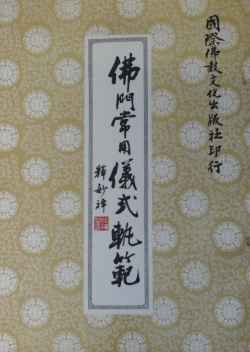 國際佛教文化出版社印行
佛門常用儀式軌範
釋妙禪